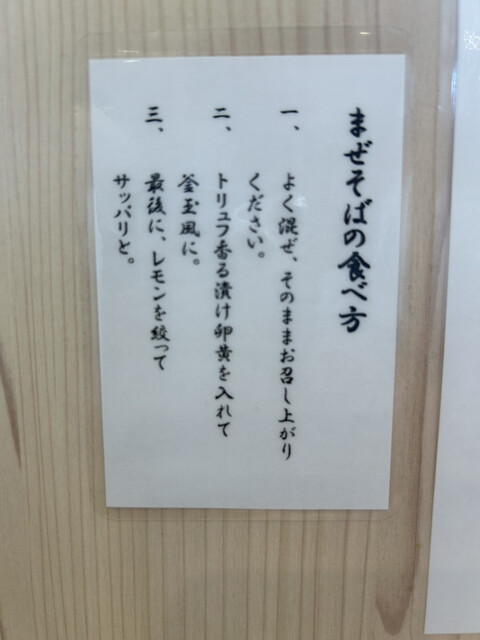 まぜそばの食べ方
一、よく混ぜ、そのままお召し上がり
ください。
二、トリュフ香る漬け卵黄を入れて
釜玉風に。
三、最後に、レモンを絞って
サッパリと。